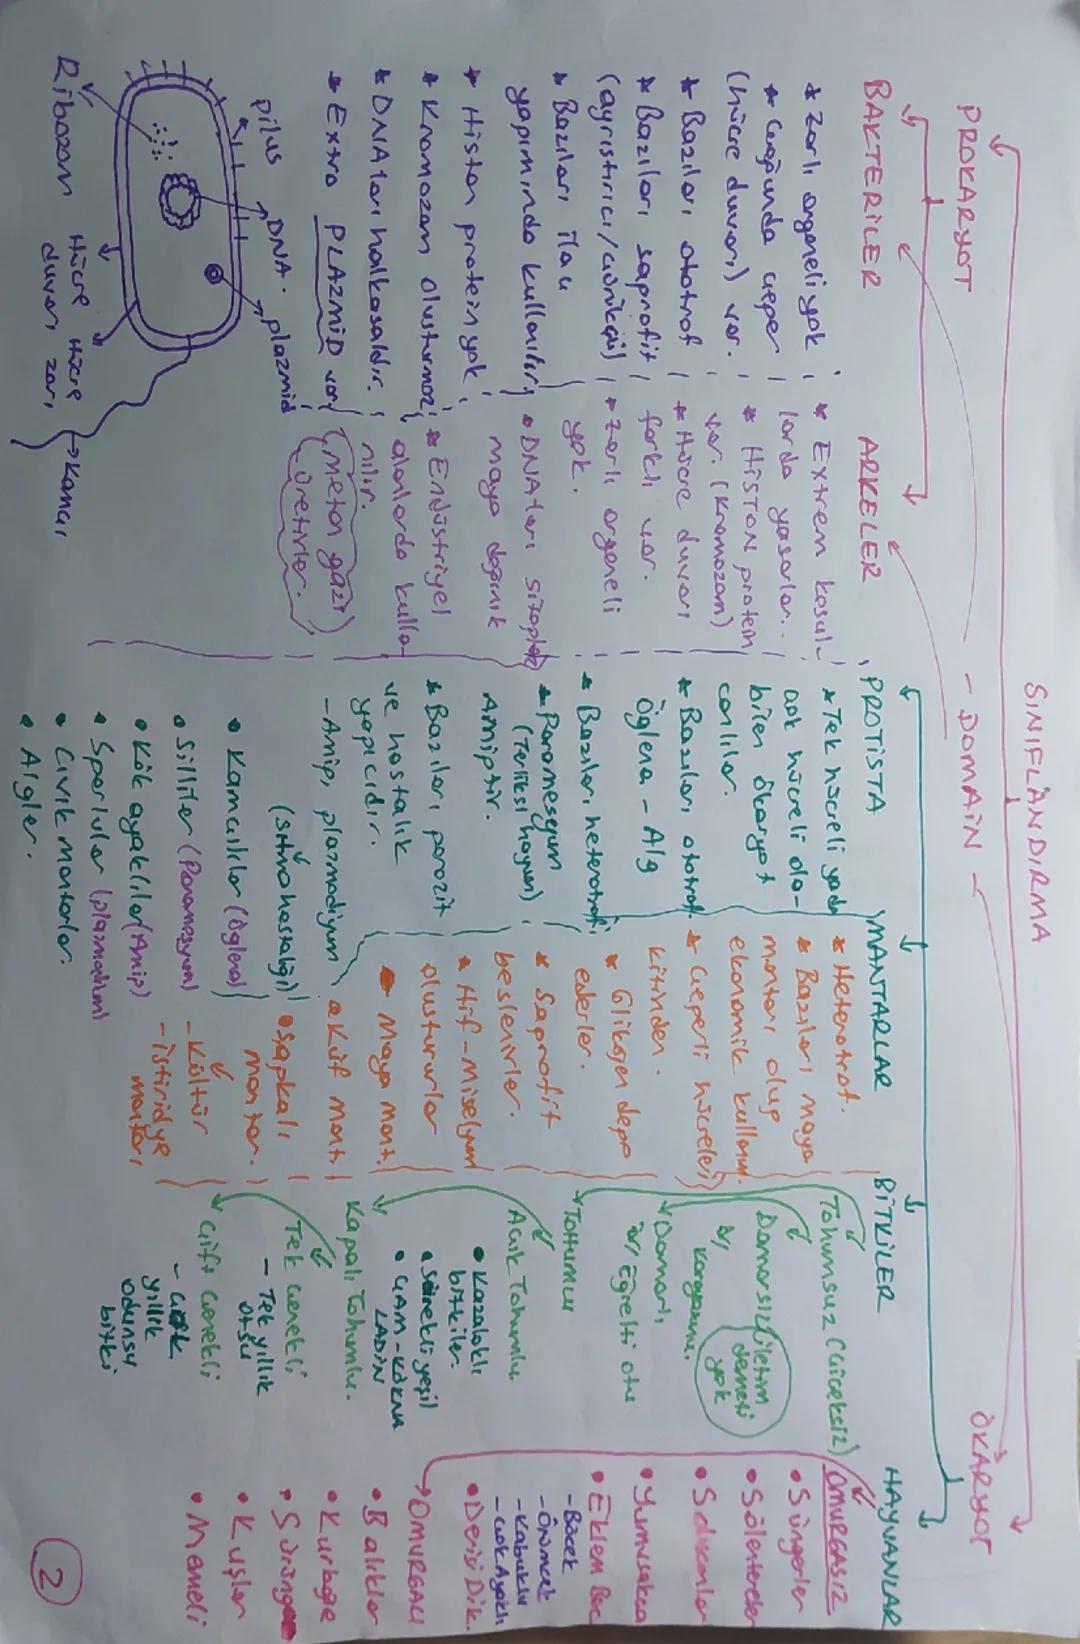 SINIFLANDIRMA
PROKARYOT
- DOMAİN -
ÖKARYOT
BAKTERİLER
* Zarlı organeli yok
* Çoğunda çeper
(hücre duvarı) var.
* Bazıları ototrof
* Bazıları saprofit
(ayrıştırıcı/çürükçül)
* Bazıları ilaç
yapımında kullanılır
* Histon protein yok
* Kromozom oluşturmaz
* DNA'ları halkasaldır.
* Extra PLAZMİD var
pilus
DNA.
plazmid
Ribozom
Hücre
duvarı
Hücre
zarı
→ Kamçı
ARKELER
* Extrem koşul-
larda yaşarlar..
* HİSTON protein
var. (Kromozom)
* Hücre duvarı
farklı var.
* Zarlı organeli
yok.
* DNA'ları sitoplaz
maya dağınık
* Endüstriyel
alanlarda kulla-
nılır.
(metan gazı)
üretirler.
PROTİSTA
* Tek hücreli yada
çok hücreli ola-
bilen ökaryot
canlılar.
* Bazıları ototrof.
Öglena - Alg
* Bazıları heterotrof
* Paramesyum
(Terliksi hayvan)
Amiptir.
* Bazıları parazit
ve hastalık
yapıcıdır.
- Amip, plazmodiyum
(sıtma hastalığı)
• Kamçılılar (öglena)
• Silliler (Paramesyum)
• Kök ayaklılar (Amip)
• Sporlular (plazmodium)
• Cıvık mantarlar.
• Algler.
MANTARLAR
* Heterotrof.
* Bazıları maya
mantarı olup
ekonomik kullanım.
* Çeperli hücreleri
kitinden.
* Glikojen depo
ederler.
* Saprofit
beslenirler.
* Hif - Miselyum
oluştururlar
• Maya mant.
• Küf mant.
• Şapkalı
mantar.
- Kültür
- istiridye
mantarı
BİTKİLER
Tohumsuz (Çiçeksiz)
Damarsız (iletim
demeti
yok
ör/ Karayosunu.
Damarlı
ör/ Eğrelti otu
Tohumlu
Açık Tohumlu
• Kozalaklı
bitkiler.
• Sürekli yeşil
• ÇAM - KÖKNAR
LADİN
Kapalı Tohumlu.
Tek Çenekli
- Tek yıllık
otsu
Çift Çenekli
- Çok
yıllık
odunsu
bitki
HAYVANLAR
OMURGASIZ
• Süngerler
• Sölenterler
• Solucanlar
• Yumuşakça
• Eklem Bac
- Böcek
- Örümcek
- Kabuklu
- Çok Ayaklı
• Derisi Dik.
OMURGALI
• Balıklar
• Kurbağa
• Sürüngen
• Kuşlar
• Memeli
2